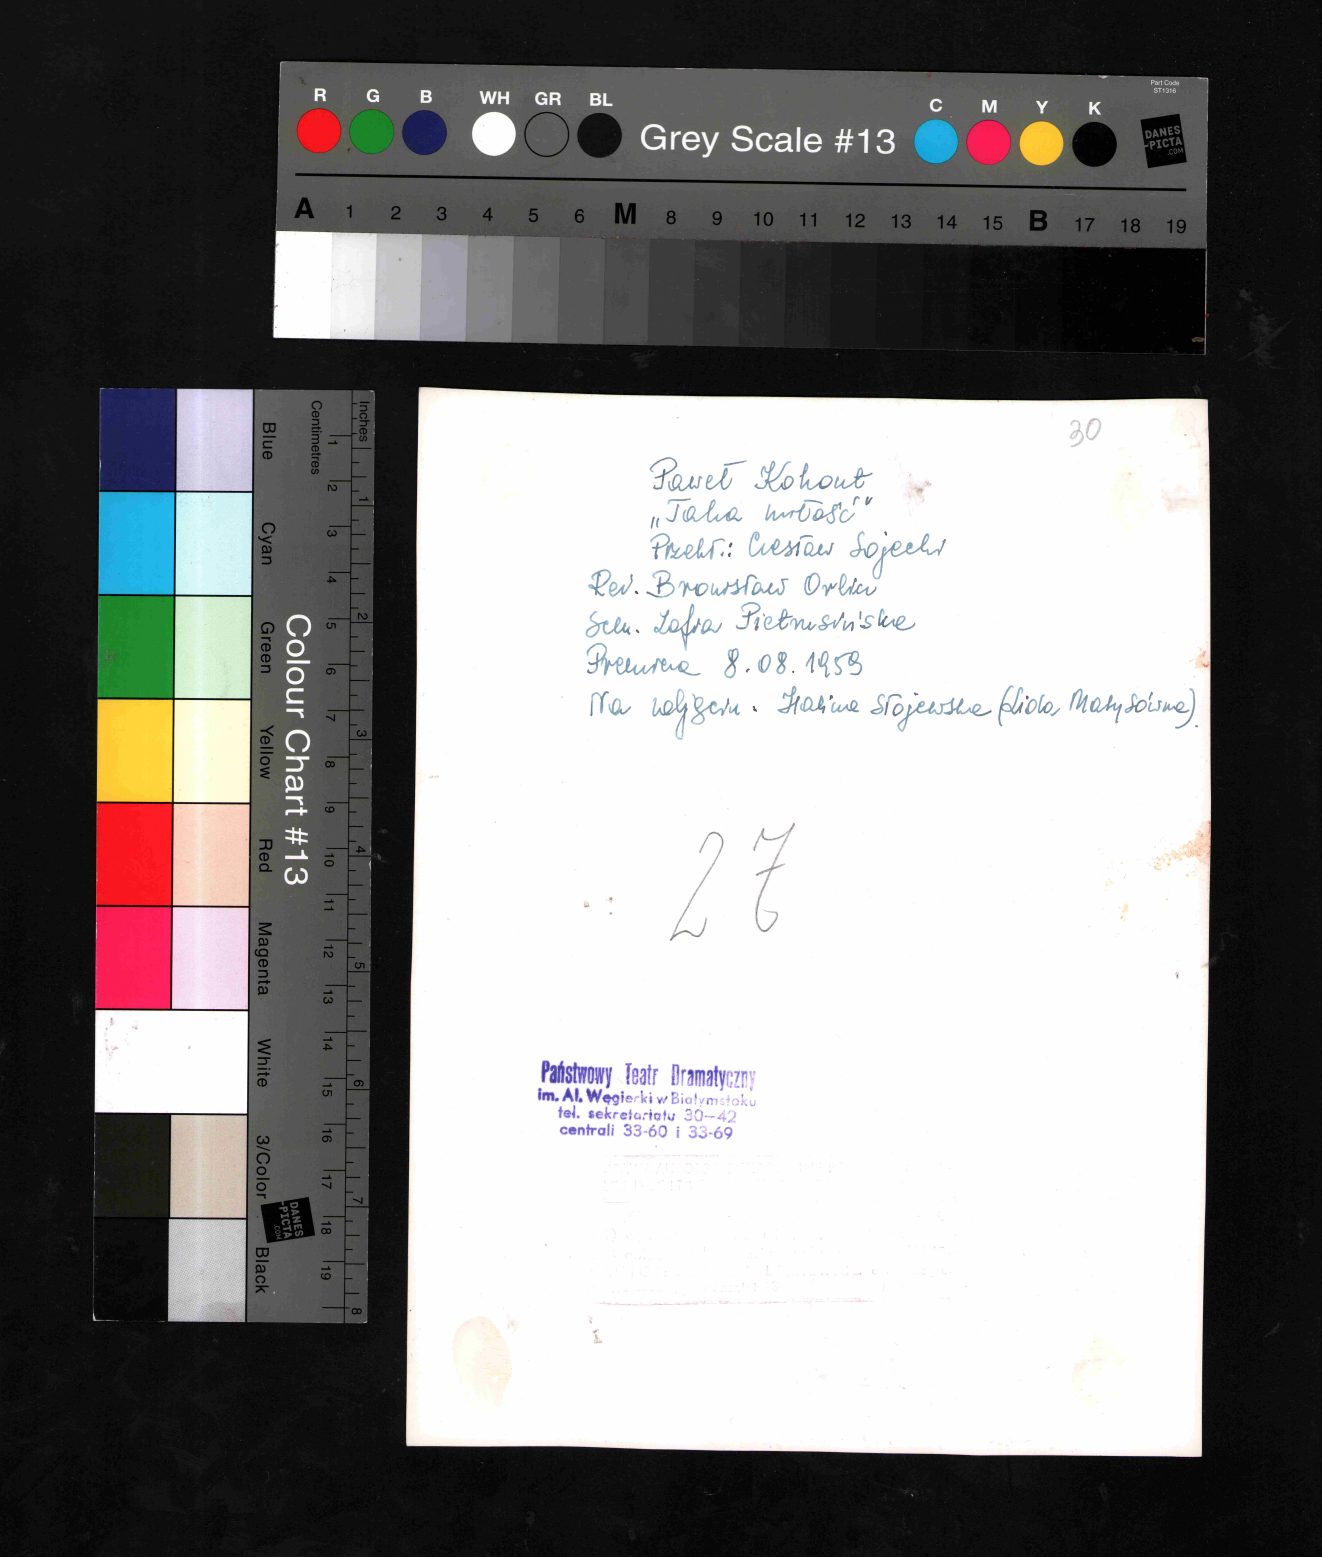 Part Code
ST1316
R G B WH GR BL Grey Scale #13 C M Y K
DANES
-PICTA
.COM
A 1 2 3 4 5 6 M 8 9 10 11 12 13 14 15 B 17 18 19
Colour Chart #13
Blue Cyan Green Yellow Red Magenta White 3/Color Black
Centimetres 1 2 3 4 5 6 7 8 9 10 11 12 13 14 15 16 17 18 19
Inches 1 2 3 4 5 6 7 8
DANES
-PICTA
.COM
30
Paweł Kohout
„Taka miłość"
Przekł.: Czesław Sojecki
Reż. Bronisław Orlicz
Scen. Zofia Pietrusińska
Premiera 8.08.1959
Na zdjęciu. Halina Stojewska (Lida Matysówna).
27
Państwowy Teatr Dramatyczny
im. Al. Węgierki w Białymstoku
tel. sekretariatu 30-42
centrali 33-60 i 33-69